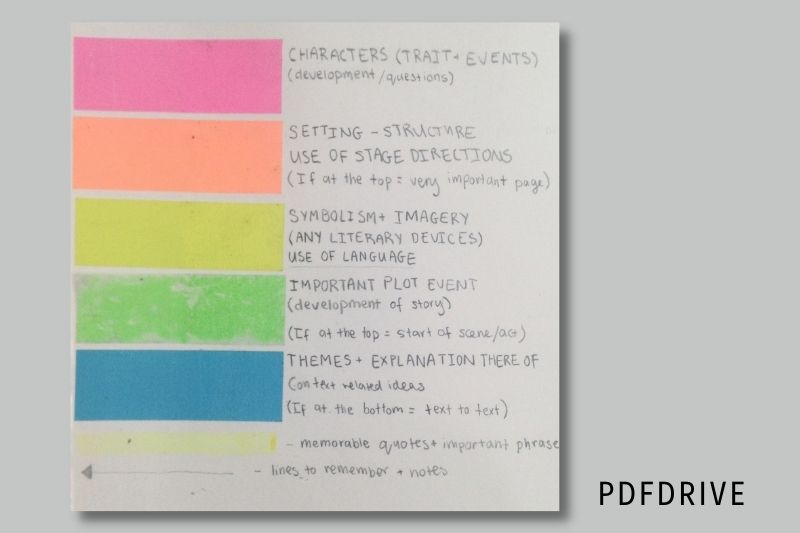 CHARACTERS (TRAIT+ EVENTS)
(development/questions)
SETTING - STRUCTURE
USE OF STAGE DIRECTIONS
(If at the top = very important page)
SYMBOLISM+ IMAGERY
(ANY LITERARY DEVICES)
USE OF LANGUAGE
IMPORTANT PLOT EVENT
(development of story)
(If at the top = start of scene/act)
THEMES + EXPLANATION THERE OF
Context related ideas
(If at the bottom = text to text)
- memorable quotes+ important phrase
- lines to remember + notes
PDFDRIVE